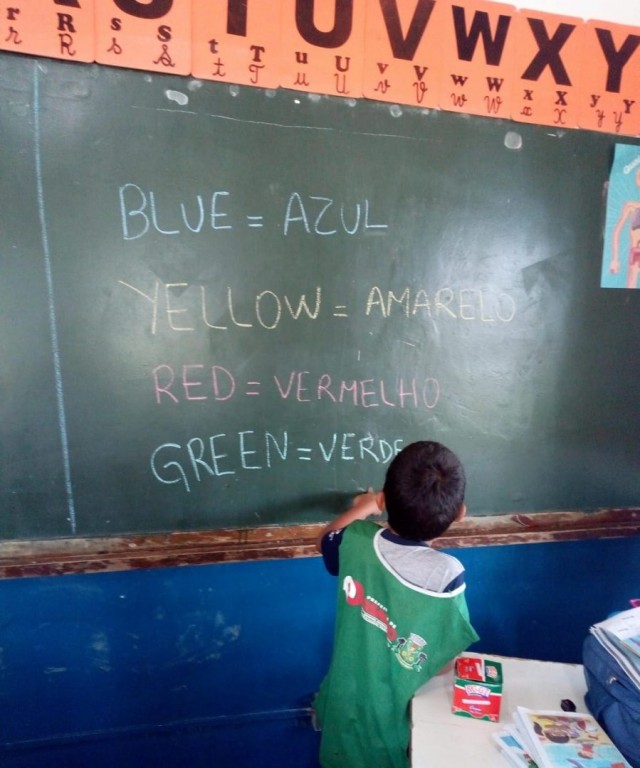 U V W X Y
r R s S t T u U v V w W x X y Y
r R s S t T u U v V w W x X y Y
BLUE = AZUL
YELLOW = AMARELO
RED = VERMELHO
GREEN = VERDE